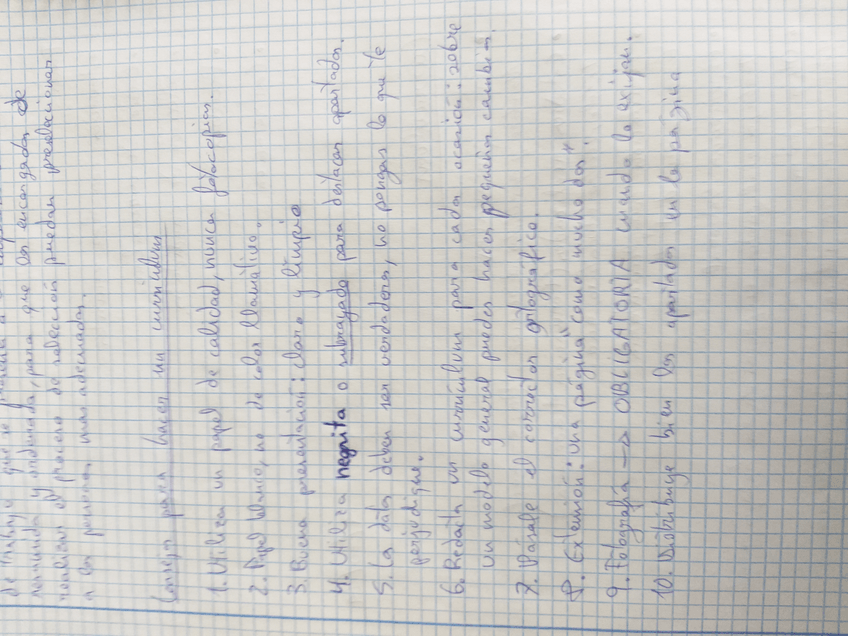 de trabajo que se
resumida y ordenada, para que los encargados de
realizar el proceso de selección puedan preseleccionar
a las personas más adecuadas.
Consejos para hacer un currículum
1. Utiliza un papel de calidad, nunca fotocopias.
2. Papel blanco, no de color llamativo.
3. Buena presentación: claro y limpio
4. Utiliza negrita o subrayado para destacar apartados.
5. Los datos deben ser verdaderos, no pongas lo que te
perjudique.
6. Redacta un currículum para cada ocasión: sobre
un modelo general puedes hacer pequeños cambios.
7. Pásale el corrector ortográfico.
8. Extensión: una página "como mucho dos".
9. Fotografía → OBLIGATORIA cuando la exijan.
10. Distribuye bien los apartados en la página